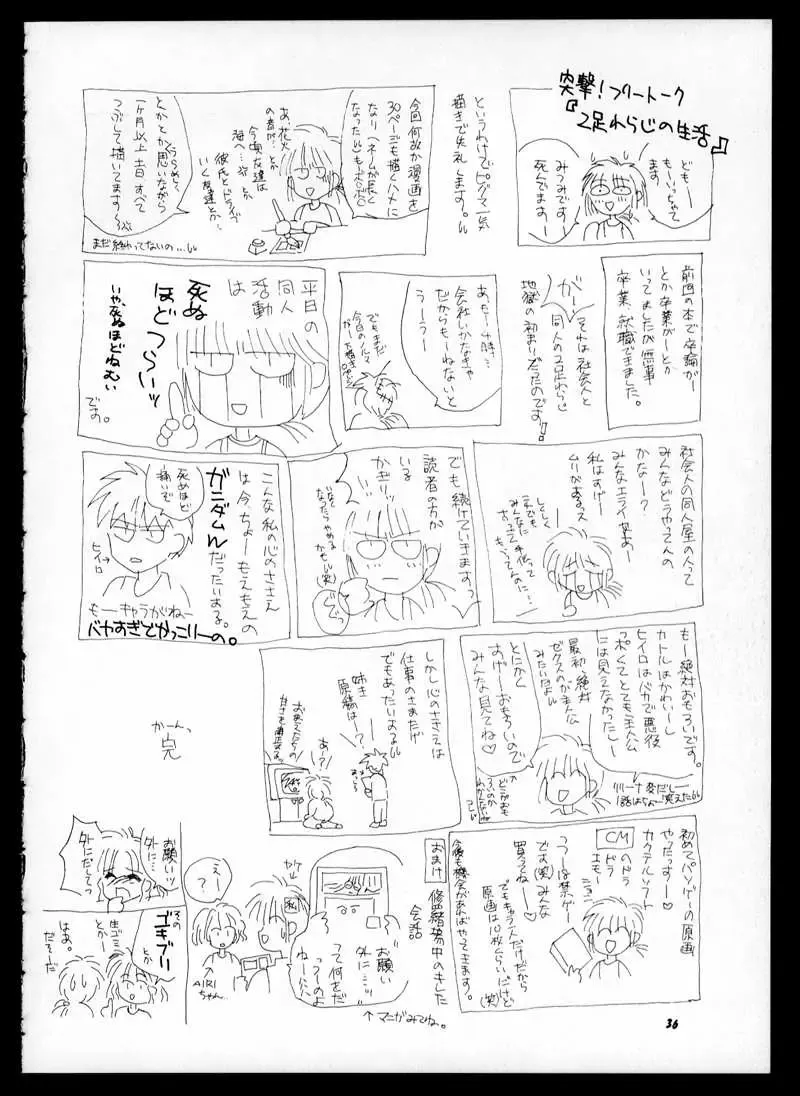 突撃！フリートーク
『2足わらじの生活』
どもー
もーいっちゃて
ます
みつみです
死んでますー
というわけでトビラ一気
描きで失礼します。
今回何故か漫画を
30ページも描くハメに
なり(ネームが長く
なった)もーボロボロ
あ、花火
の音が…とか
今頃友達は
海へ…とか
彼氏とドライブ
いく友達とか…
とかとか思いながら
一ヶ月以上土日すべて
つぶして描いてます〜
まだ終わってないの…
前回の本で卒論がー
とか卒業がーとか
いってましたが無事
卒業、就職できました。
がーっ
それは社会人と
同人の2足わらじ
地獄の初まりだったのです』
あ、もー4時…
会社いかなきゃ
だからもーねないと
うーう
でもまだ
今日のノルマ
が…
平日の
同人
活動
は
死ぬ
ほど
つらいッ
いや、死ぬほどねむい
です。
社会人の同人屋の人って
みんなどうやってんの
かなー？
みんなエライなあー
私はすげー
ムリがあるス
しくしく
これでも
みんなに
手伝って
もらってんのに…
でも、続けていきますっ
読者の方が
いる
かぎりッ
いなく
なったらやめる
かもしい(笑)
ぐぐっ
こんな私の心のささえ
は今ちょーもえもえの
ガンダムW
だったいする。
死ぬほど
痛いぞ
ヒイロ
もーキャラがいねー
バカすぎでかっこリーの。
もー絶対おもろいです。
カトルはかわいーし
ヒイロはバカで悪役
っぽくてとても主人公
には見えなかったしー
最初絶対
ゼクスのが主人公
みたいだよ
とにかく
おげーおもろいので
みんな見てね♡
リリーナ変だしー
1話はちょー笑えた
とか
どこがおも
ろいのか
わかんないね
しかし心のささえは
仕事のさまたげ
でもあったいする
姉キ
原稿は…？
あ？
かーん、
完
初めてパソゲーの原画
やったっすー♡
カクテルソフト
CM
のドラ
ドラ
エモー
うっうーは禁ゲー
です(笑)みんな
買ってねー♡
でもキャラ一人だけだから
原画は10枚くらいだけど(笑)
今後も機会があればやってきます。
おまけ
修羅場中のきした
会話
お願い
外に…ッ
って何をだ
っつーのよ
ねー
私
えー
？
AIRI
ちゃん…
↑マニがみてね。
お願いッ
外に…
外にだしてっ
その
ゴキブリー
とか
生ゴミー
とかー
はあ。
だそーだ
36